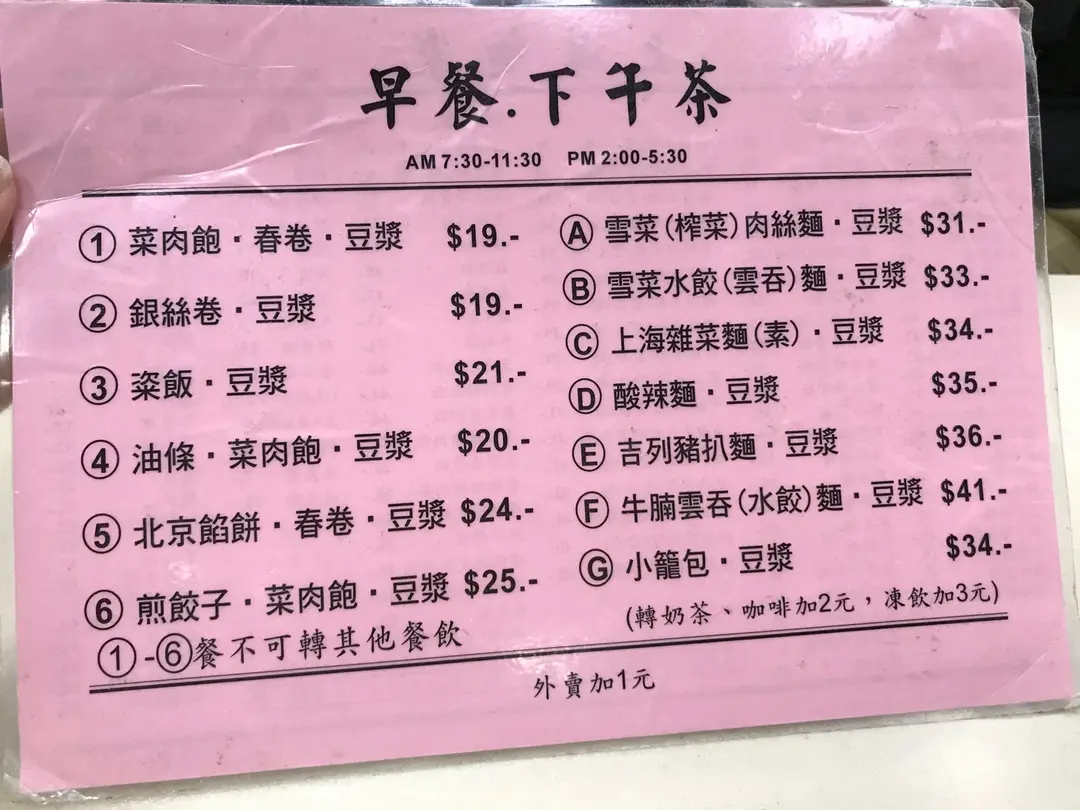 早餐.下午茶
AM 7:30-11:30 PM 2:00-5:30
① 菜肉飽・春卷・豆漿 $19.-
② 銀絲卷・豆漿 $19.-
③ 粢飯・豆漿 $21.-
④ 油條・菜肉飽・豆漿 $20.-
⑤ 北京餡餅・春卷・豆漿 $24.-
⑥ 煎餃子・菜肉飽・豆漿 $25.-
①-⑥餐不可轉其他餐飲
Ⓐ 雪菜(榨菜)肉絲麵・豆漿 $31.-
Ⓑ 雪菜水餃(雲吞)麵・豆漿 $33.-
Ⓒ 上海雜菜麵(素)・豆漿 $34.-
Ⓓ 酸辣麵・豆漿 $35.-
Ⓔ 吉列豬扒麵・豆漿 $36.-
Ⓕ 牛腩雲吞(水餃)麵・豆漿 $41.-
Ⓖ 小籠包・豆漿 $34.-
(轉奶茶、咖啡加2元，凍飲加3元)
外賣加1元